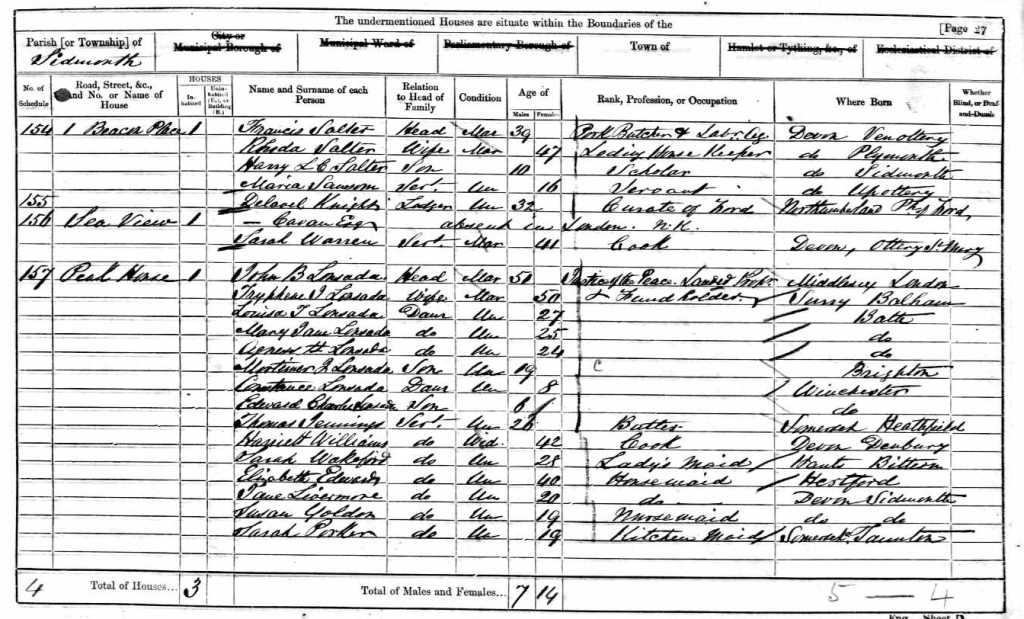 The undermentioned Houses are situate within the Boundaries of the
[Page 27
Parish [or Township] of
Sidmouth
City or
Municipal Borough of
Municipal Ward of
Parliamentary Borough of
Town of
Hamlet or Tything, &c., of
Ecclesiastical District of
No. of Schedule
Road, Street, &c., and No. or Name of House
HOUSES
Inhabited
Uninhabited (U.), or Building (B.)
Name and Surname of each Person
Relation to Head of Family
Condition
Age of
Males
Females
Rank, Profession, or Occupation
Where Born
Whether Blind, or Deaf and Dumb
154 1 Beacon Place 1 Francis Salter Head Mar 39 Pork Butcher & Devon Venottery
Rhoda Salter Wife Mar 47 Lodging House Keeper do Plymouth
Harry L C Salter Son 10 Scholar do Sidmouth
Maria Sansom Servt. Un 16 Servant do Upottery
155 Knight Lodger Un 32 Curate of Ford Northumberland Ph of Ford,
156 Sea View 1 — Cavan Esq absent in London. N.K.
Sarah Warren Servt. Mar 41 Cook Devon, Ottery St Mary
157 Peak House 1 John B Lousada Head Mar 50 Justice of the Peace. Landed Propr Middlesex London
Tryphene J Lousada Wife Mar 50 & Fundholder Surry Balham
Louisa T Lousada Daur Un 27 Bath
Mary Jane Lousada do Un 25 do
Agness H Lousada do Un 24 do
Mortimer J Lousada Son Un 19 C Brighton
Constance Lousada Daur Un 8 Winchester
Edward Charles Lousada Son 6 do
Thomas Jennings Servt. Un 26 Butler Somerset Heathfield
Harriett Williams do Wid. 42 Cook Devon Denbury
Sarah Wakeford do Un 28 Lady's Maid Hants Bittern
Elizabeth Edwards do Un 40 Housemaid Hertford
Jane Livermore do Un 20 do Devon Sidmouth
Susan Yoldon do Un 19 Nursemaid do do
Sarah Porker do Un 19 Kitchen Maid Somerset. Taunton
4 Total of Houses... 3 Total of Males and Females... 7 14 5 — 4
Eng. Sheet D.